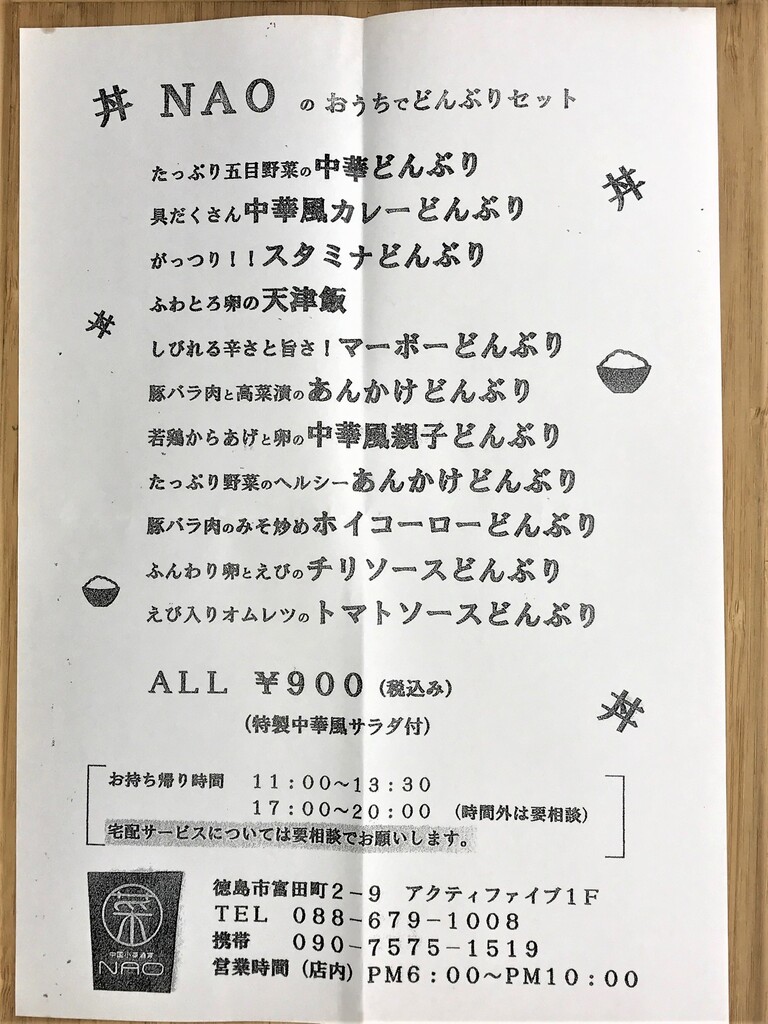 丼 NAO の おうちでどんぶりセット
たっぷり五目野菜の中華どんぶり
丼
具だくさん中華風カレーどんぶり
がっつり！！スタミナどんぶり
ふわとろ卵の天津飯
丼
しびれる辛さと旨さ！マーボーどんぶり
豚バラ肉と高菜漬のあんかけどんぶり
若鶏からあげと卵の中華風親子どんぶり
たっぷり野菜のヘルシーあんかけどんぶり
豚バラ肉のみそ炒めホイコーローどんぶり
ふんわり卵とえびのチリソースどんぶり
えび入りオムレツのトマトソースどんぶり
ALL ￥900（税込み）
丼
（特製中華風サラダ付）
お持ち帰り時間 11：00～13：30
17：00～20：00 （時間外は要相談）
宅配サービスについては要相談でお願いします。
徳島市富田町2－9 アクティファイブ1F
TEL 088－679－1008
携帯 090－7575－1519
営業時間（店内）PM6：00～PM10：00
NAO